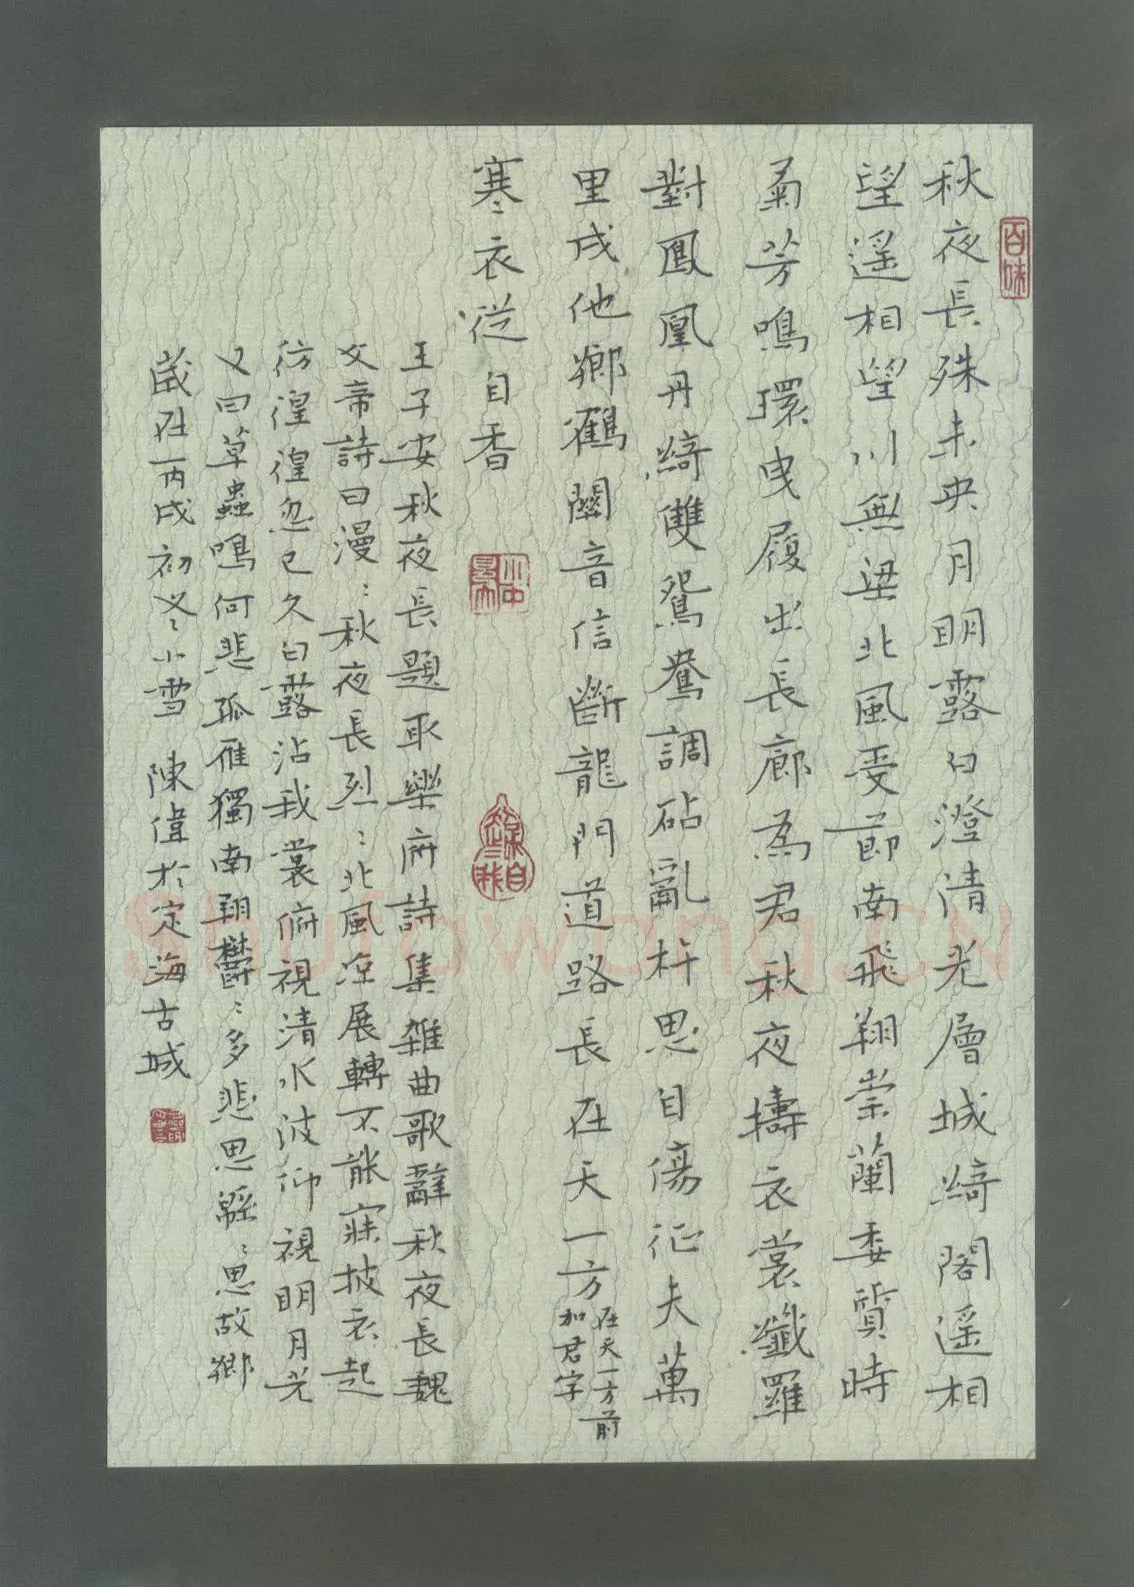 百味
秋夜長殊未央月明露白澄清光層城綺閣遥相
望遥相望川無梁北風受節南飛翔崇蘭委質時
菊芳鳴環曳履出長廊為君秋夜擣衣裳纖羅
對鳳凰丹綺雙鴛鴦調砧亂杵思自傷征夫萬
里戍他鄉鶴關音信斷龍門道路長在天一方
在天一方前
加君字
寒衣從自香
王子安秋夜長題取樂府詩集雜曲歌辭秋夜長魏
文帝詩曰漫〻秋夜長烈〻北風涼展轉不能寐披衣起
彷徨徨忽已久白露沾我裳俯視清水波仰視明月光
又曰草蟲鳴何悲孤雁獨南翔鬱〻多悲思緜〻思故鄉
歲在丙戌初冬小雪 陳偉於定海古城
Shufawang.CN